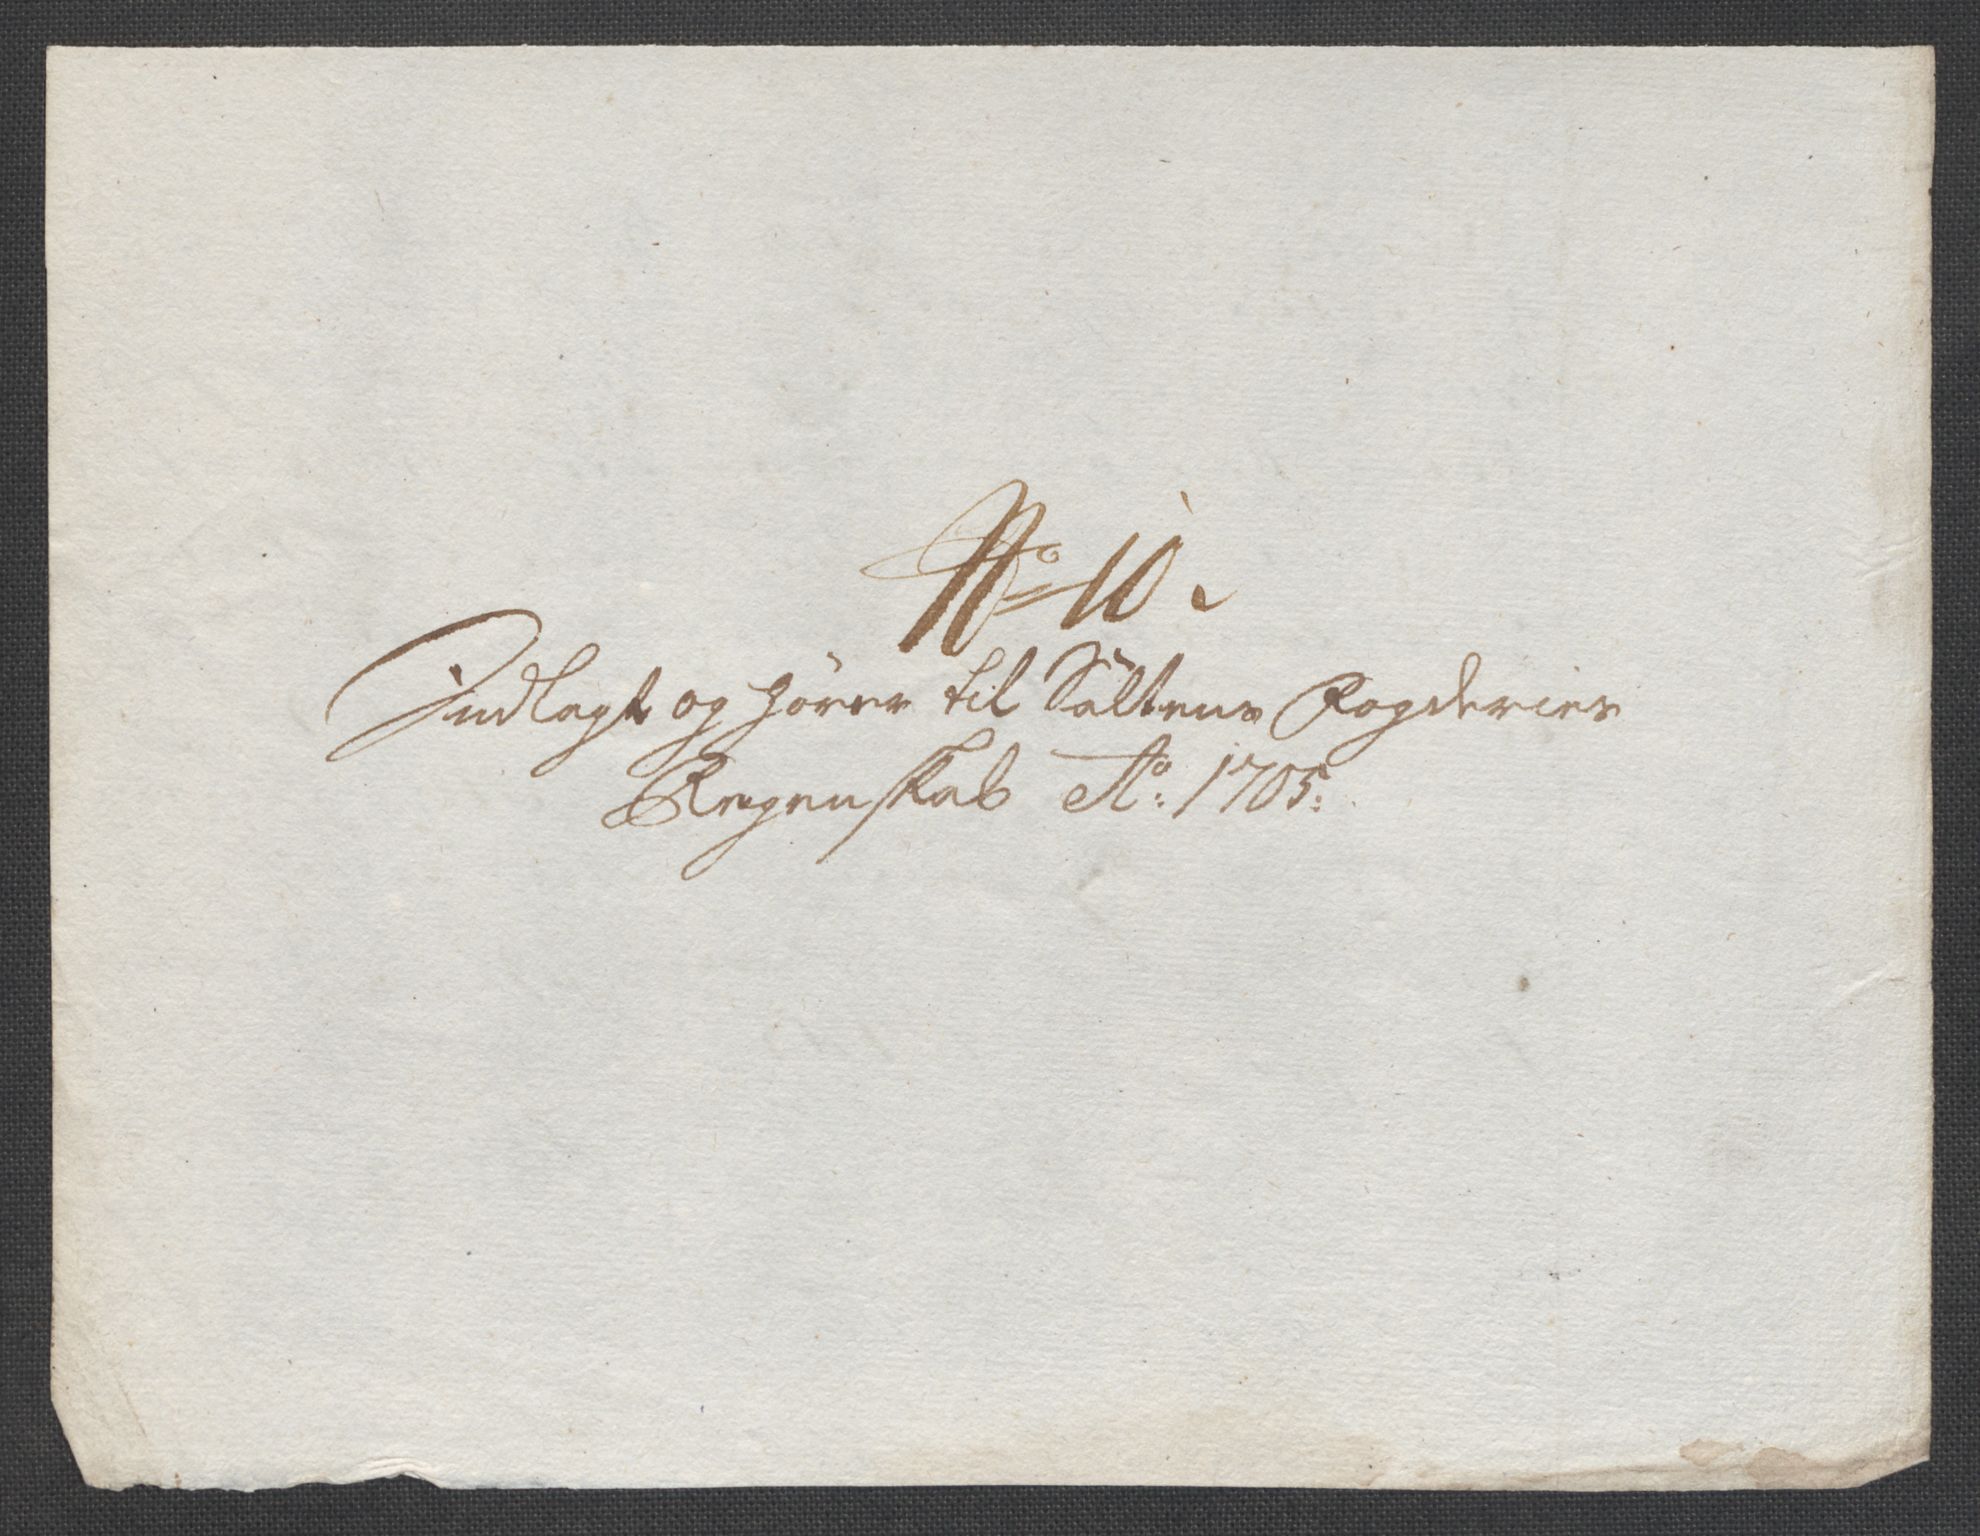 No 10.
Indlagt og hörer til Saltens Fogderies
Regenskab Ao: 1705.